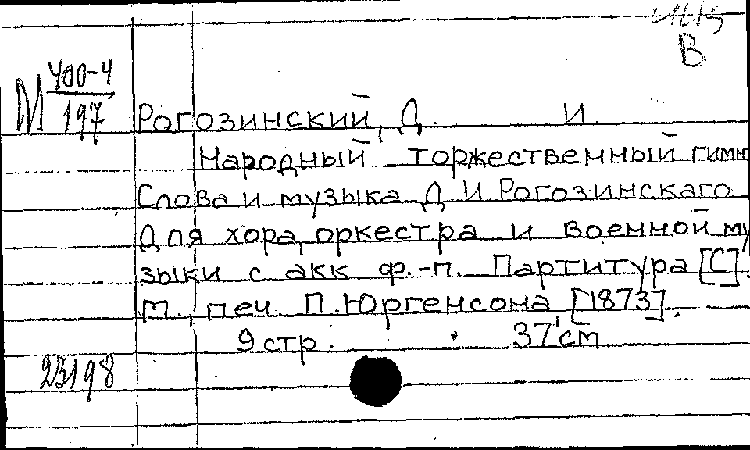 В
М 400-4
197
Рогозинский, Д. И.
Народный торжественный гимн
Слова и музыка Д. И. Рогозинскаго
Для хора, оркестра и военной му
зыки с акк ф.-п. Партитура [С]
М. печ. П. Юргенсона [1873].
9 стр. 37 см
23198